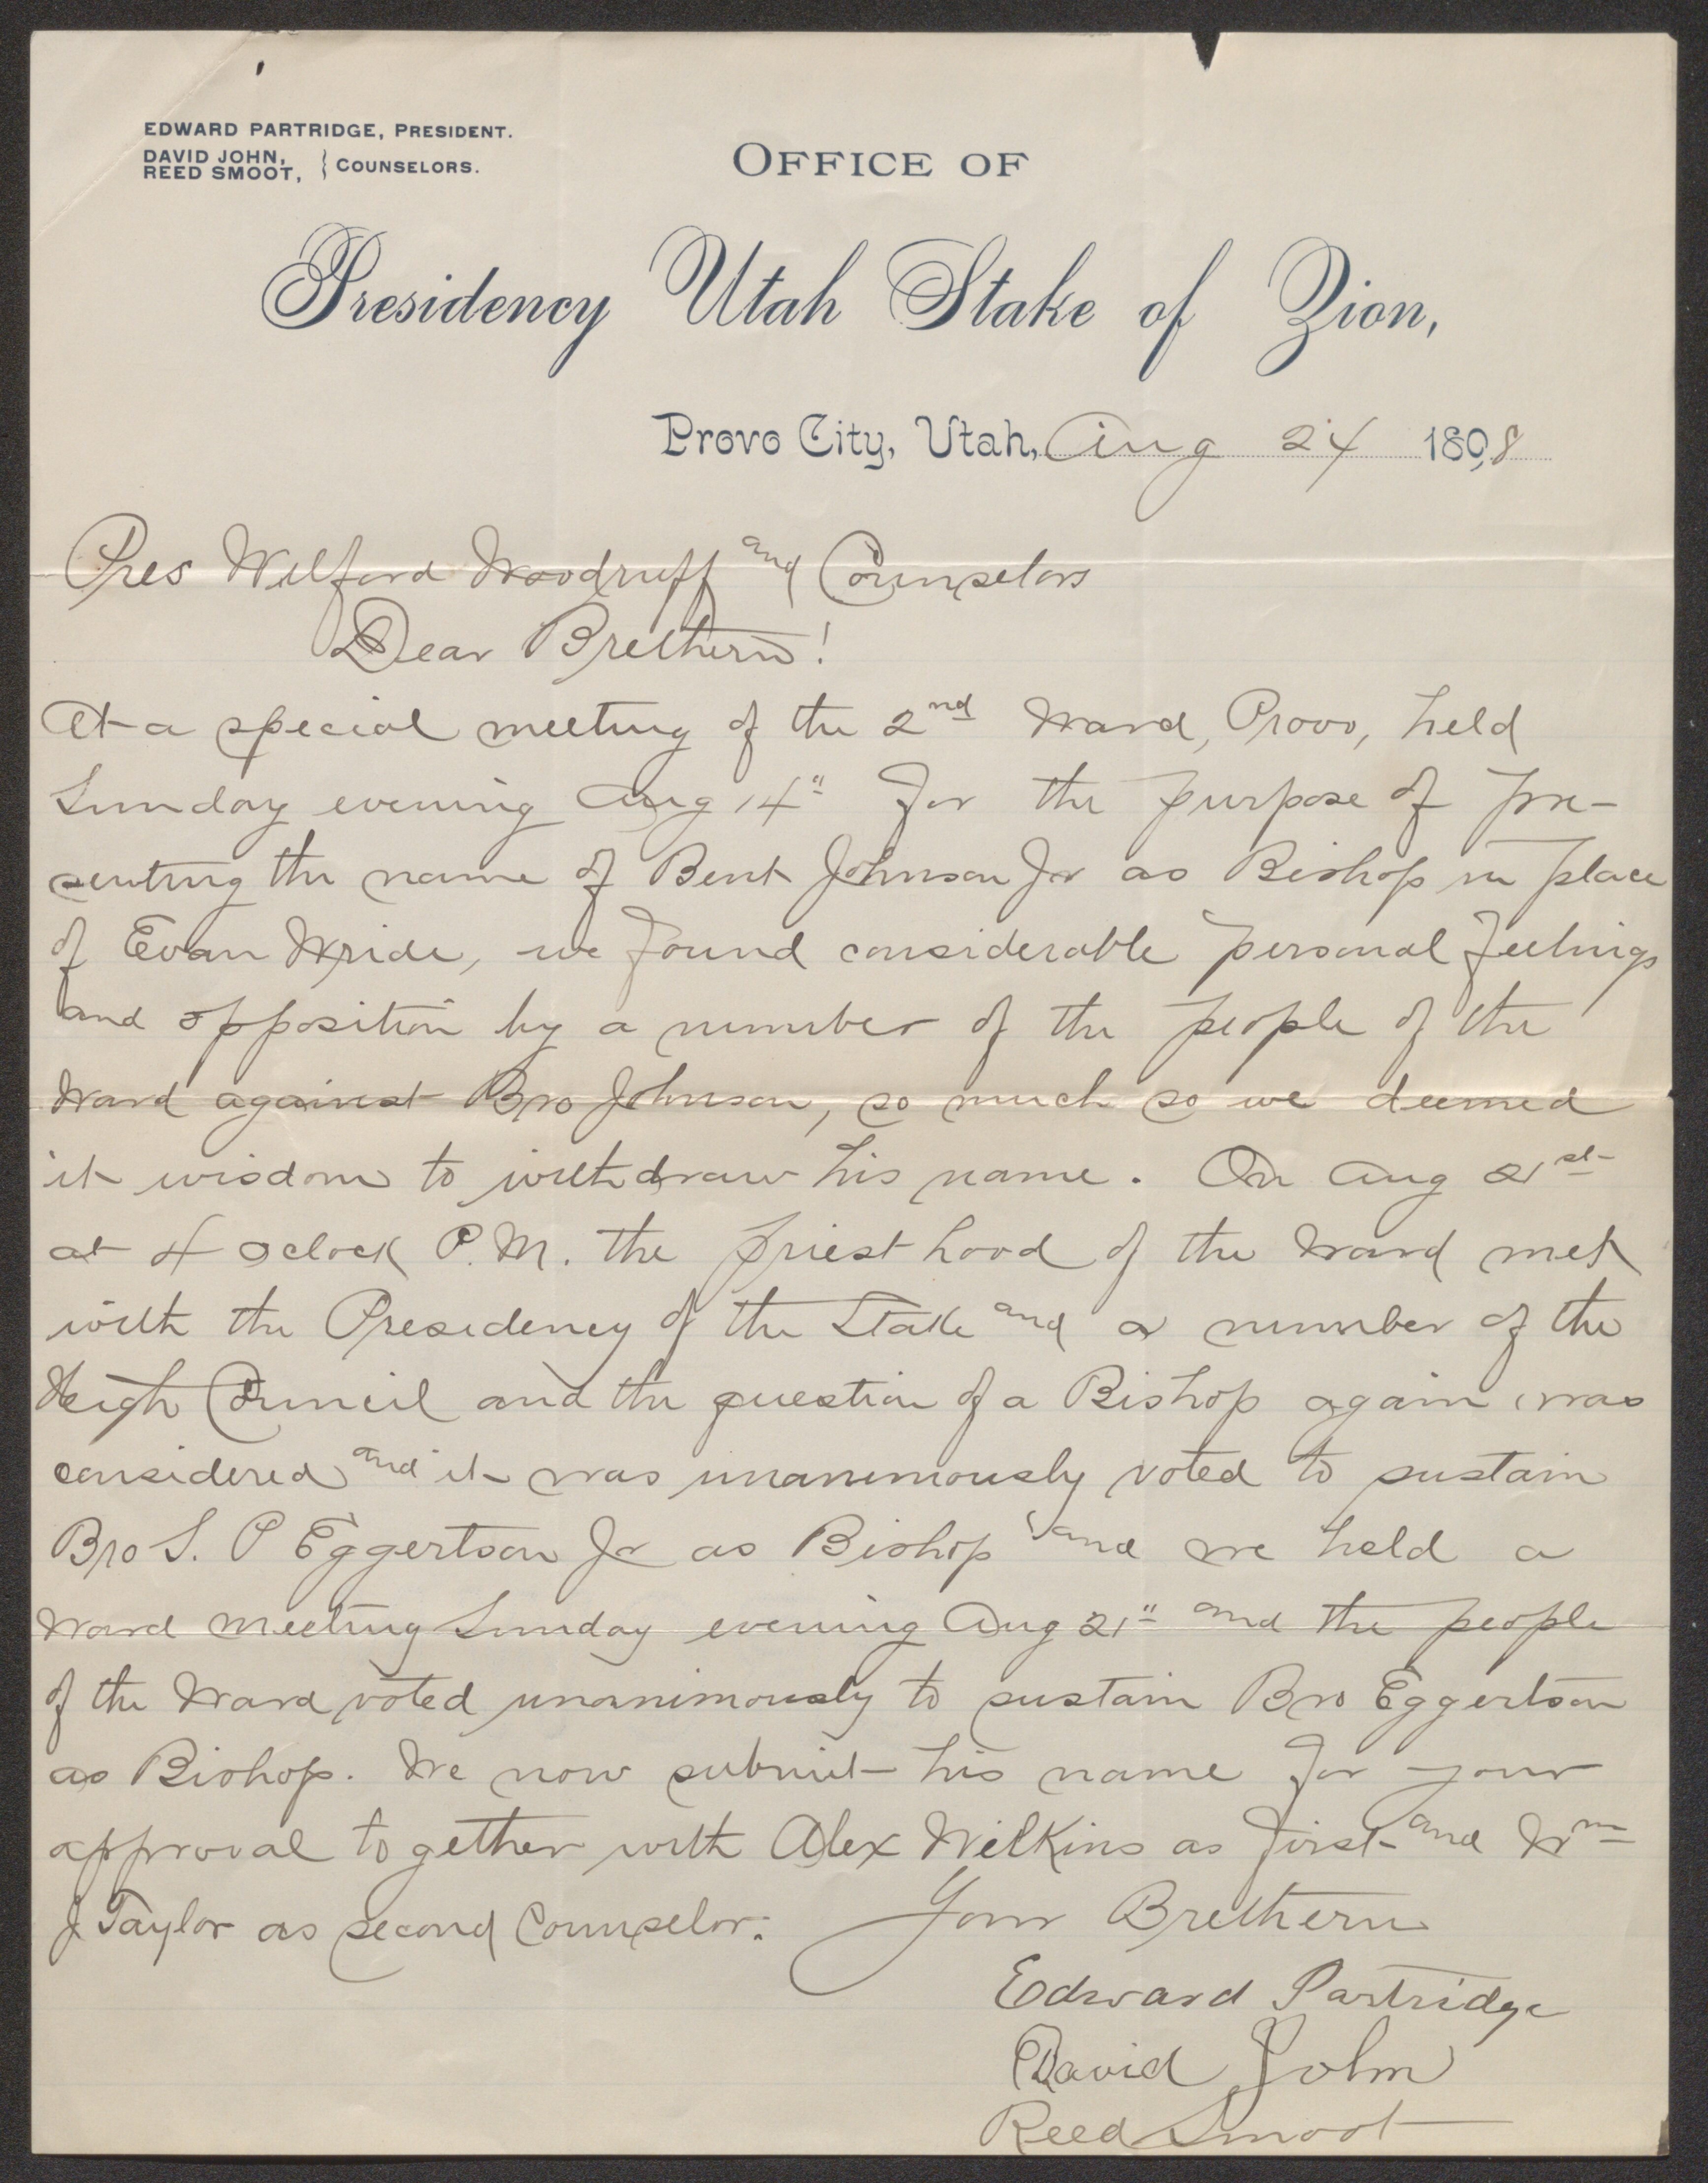 EDWARD PARTRIDGE, PRESIDENT.
DAVID JOHN,
REED SMOOT, } COUNSELORS.
OFFICE OF
Presidency Utah Stake of Zion,
Provo City, Utah, Aug 24 1898
Pres Wilford Woodruff and Counselors
Dear Brethern!
At a special meeting of the 2nd Ward, Provo, held
Sunday evening Aug 14" for the purpose of pre-
senting the name of Bent Johnson Jr as Bishop in place
of Evan Wride, we found considerable personal feelings
and opposition by a number of the people of the
Ward against Bro Johnson, so much so we deemed
it wisdom to withdraw his name. On Aug 21st
at 4 oclock P.M. the priesthood of the Ward met
with the Presidency of the Stake and a number of the
High Council and the question of a Bishop again was
considered and it was unanimously voted to sustain
Bro S. P Eggertson Jr as Bishop and we held a
Ward meeting Sunday evening Aug 21" and the people
of the Ward voted unanimously to sustain Bro Eggertson
as Bishop. We now submit his name for your
approval together with Alex Wilkins as first and Wm
J Taylor as second Counselor. Your Brethern
Edward Partridge
David John
Reed Smoot